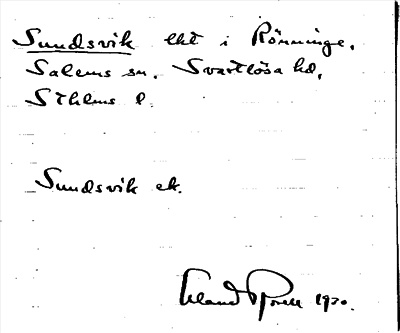 Sundsvik lht i Rönninge,
Salems sn. Svartlösa hd,
Sthlms l.
Sundsvik ek.
1930.